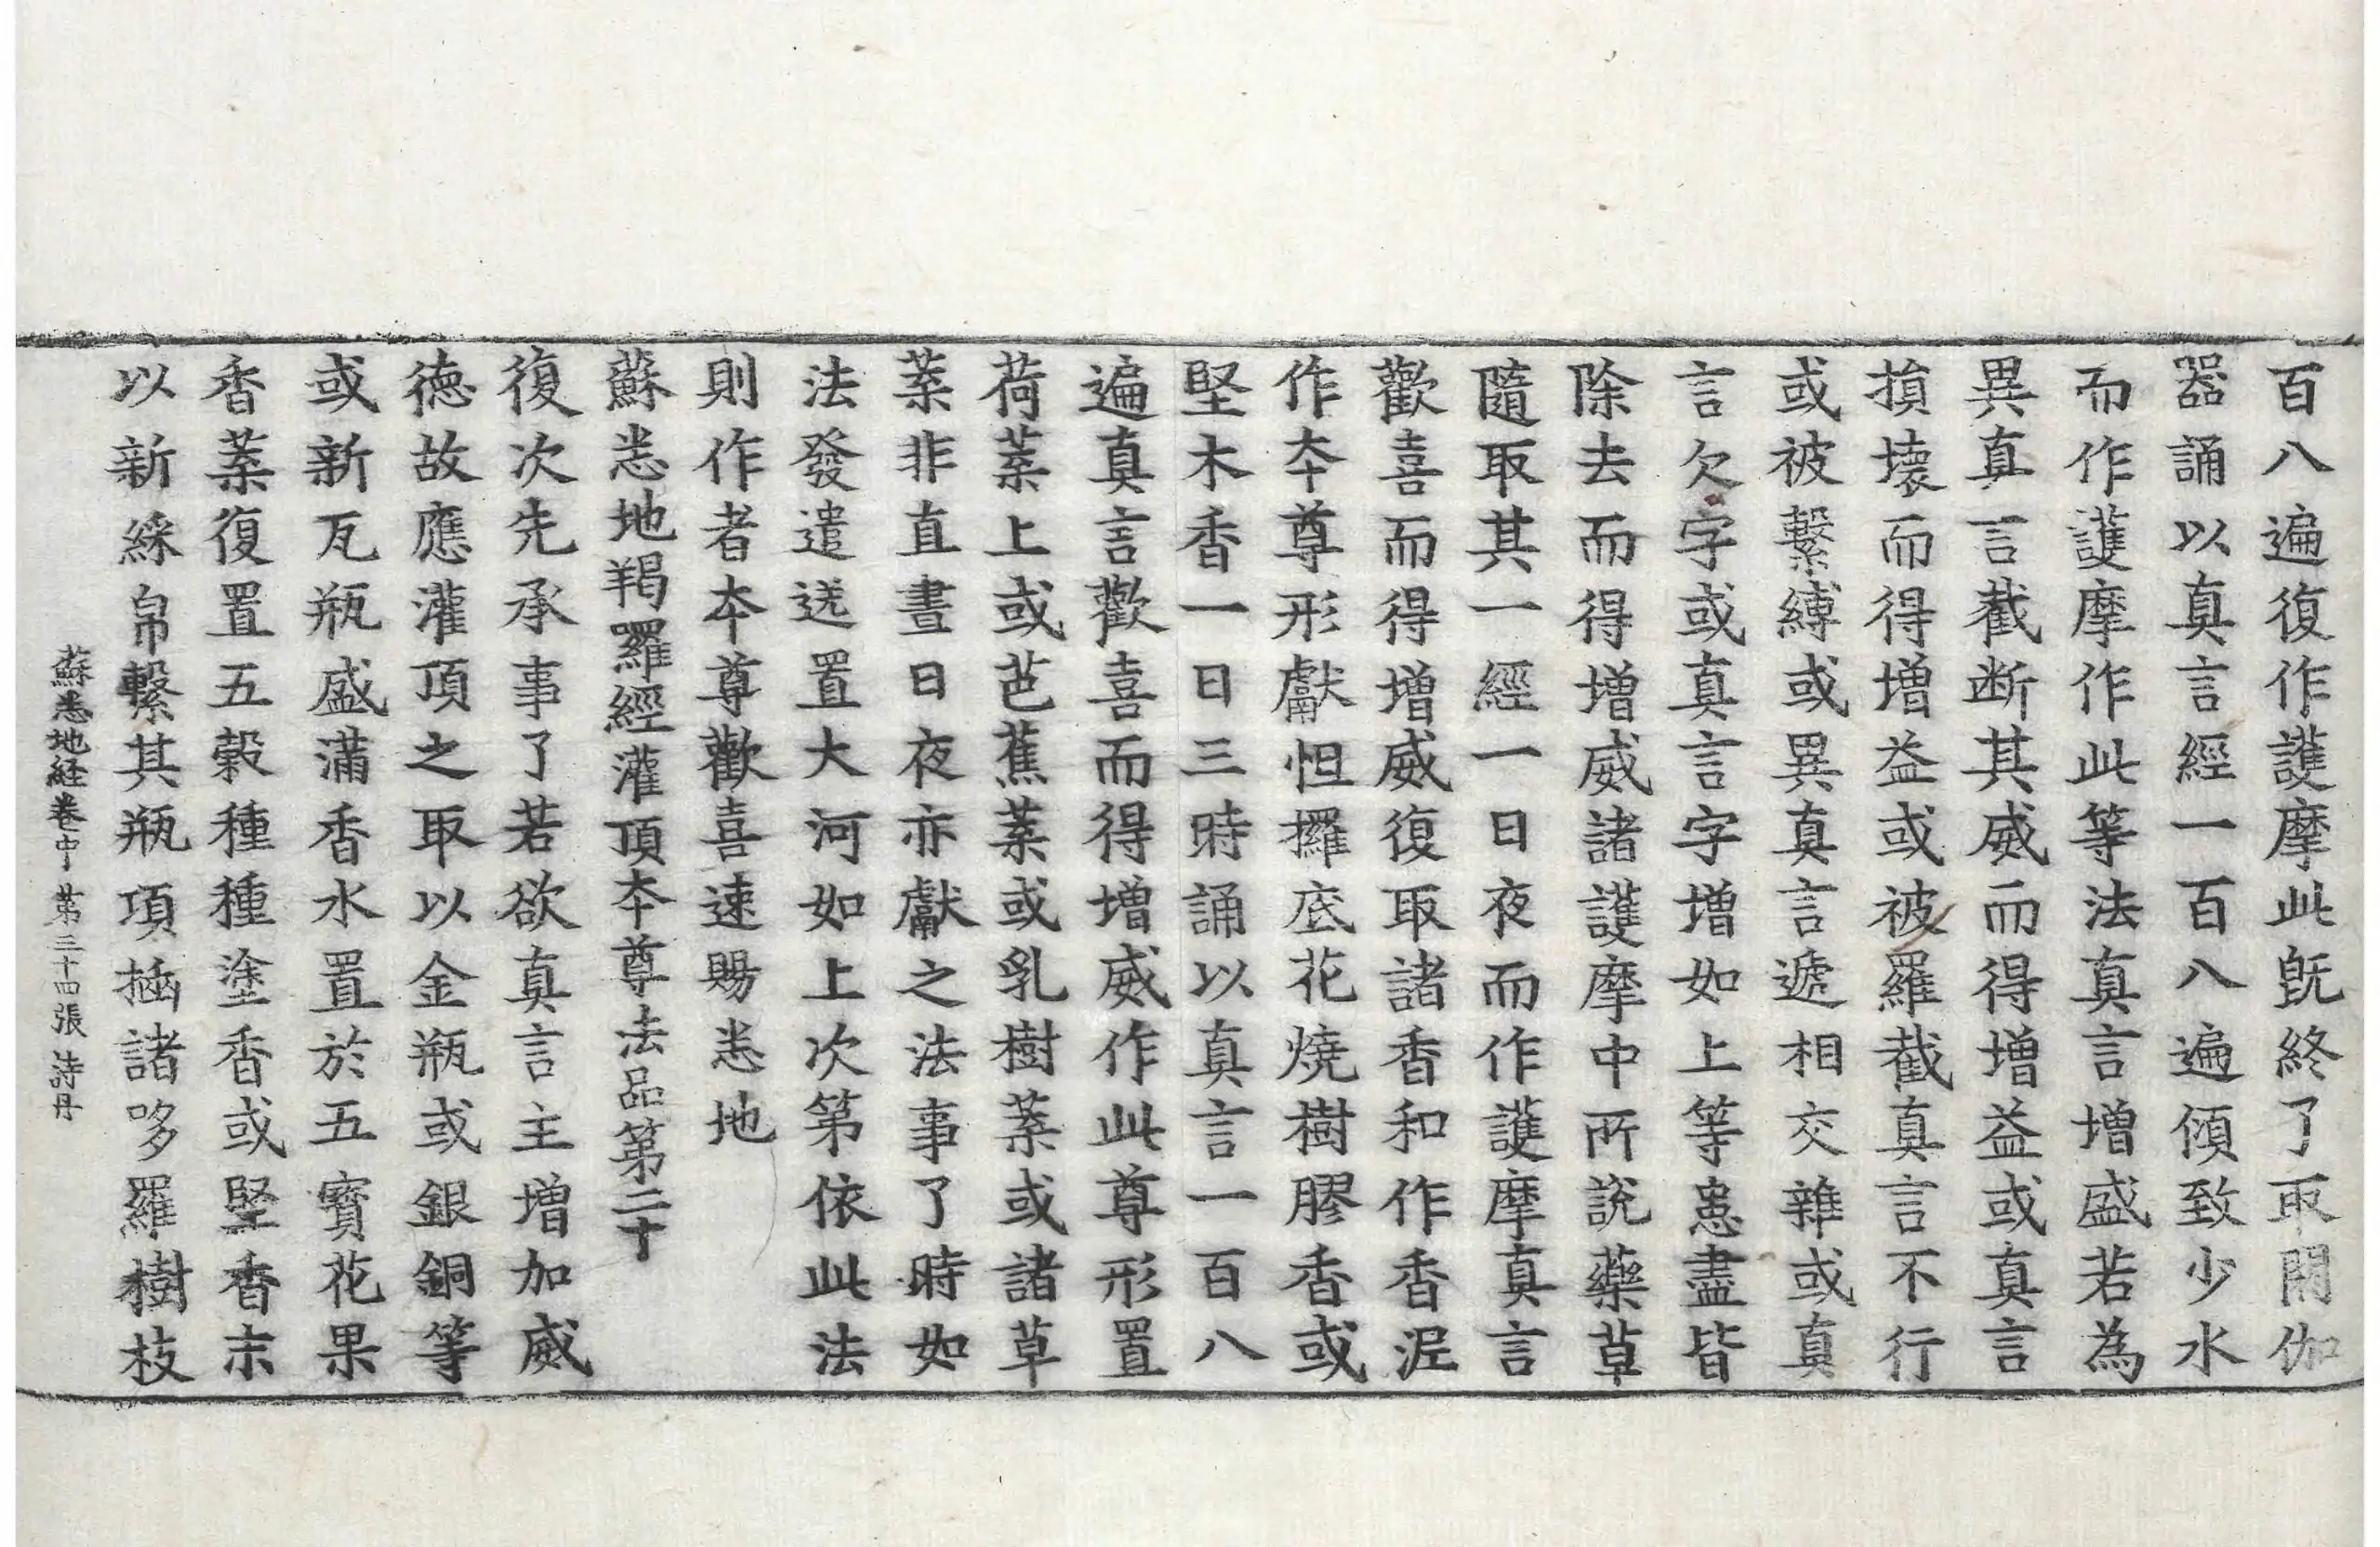 百八遍復作護摩此既終了取閼伽
器誦以真言經一百八遍傾致少水
而作護摩作此等法真言增盛若為
異真言截断其威而得增益或真言
損壞而得增益或被羅截真言不行
或被繫縛或異真言遞相交雜或真
言欠字或真言字增如上等患盡皆
除去而得增威諸護摩中所說藥草
隨取其一經一日夜而作護摩真言
歡喜而得增威復取諸香和作香泥
作本尊形獻怛攞底花燒樹膠香或
堅木香一日三時誦以真言一百八
遍真言歡喜而得增威作此尊形置
荷葉上或芭蕉葉或乳樹葉或諸草
葉非直晝日夜亦獻之法事了時如
法發遣送置大河如上次第依此法
則作者本尊歡喜速賜悉地
蘇悉地羯羅經灌頂本尊法品第二十
復次先承事了若欲真言主增加威
德故應灌頂之取以金瓶或銀銅等
或新瓦瓶盛滿香水置於五寶花果
香葉復置五穀種種塗香或堅香末
以新綵帛繫其瓶項插諸哆羅樹枝
蘇悉地経卷中 第三十四張 詩丹